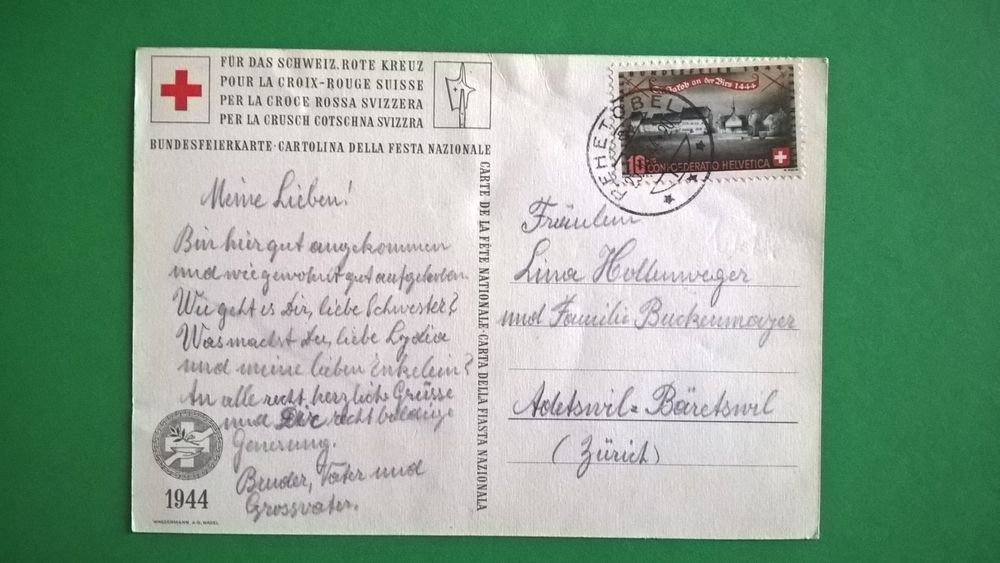 FÜR DAS SCHWEIZ. ROTE KREUZ
POUR LA CROIX-ROUGE SUISSE
PER LA CROCE ROSSA SVIZZERA
PER LA CRUSCH COTSCHNA SVIZZRA
BUNDESFEIERKARTE · CARTOLINA DELLA FESTA NAZIONALE
CARTE DE LA FÊTE NATIONALE · CARTA DELLA FIASTA NAZIONALA
Meine Lieben!
Bin hier gut angekommen
und wie gewohnt gut aufgehoben.
Wie geht es Dir, liebe Schwester?
Was machst Du, liebe Lydia
und meine lieben Enkelein?
An alle recht herzliche Grüsse
und Dir recht baldige
Genesung.
Bruder, Vater und
Grossvater.
1944
St. Jakob an der Birs 1444
10
CONFOEDERATIO HELVETICA
REHETOBEL
Fräulein
Lina Hollenweger
und Familie Buckenmayer
Adetswil-Bäretswil
(Zürich)